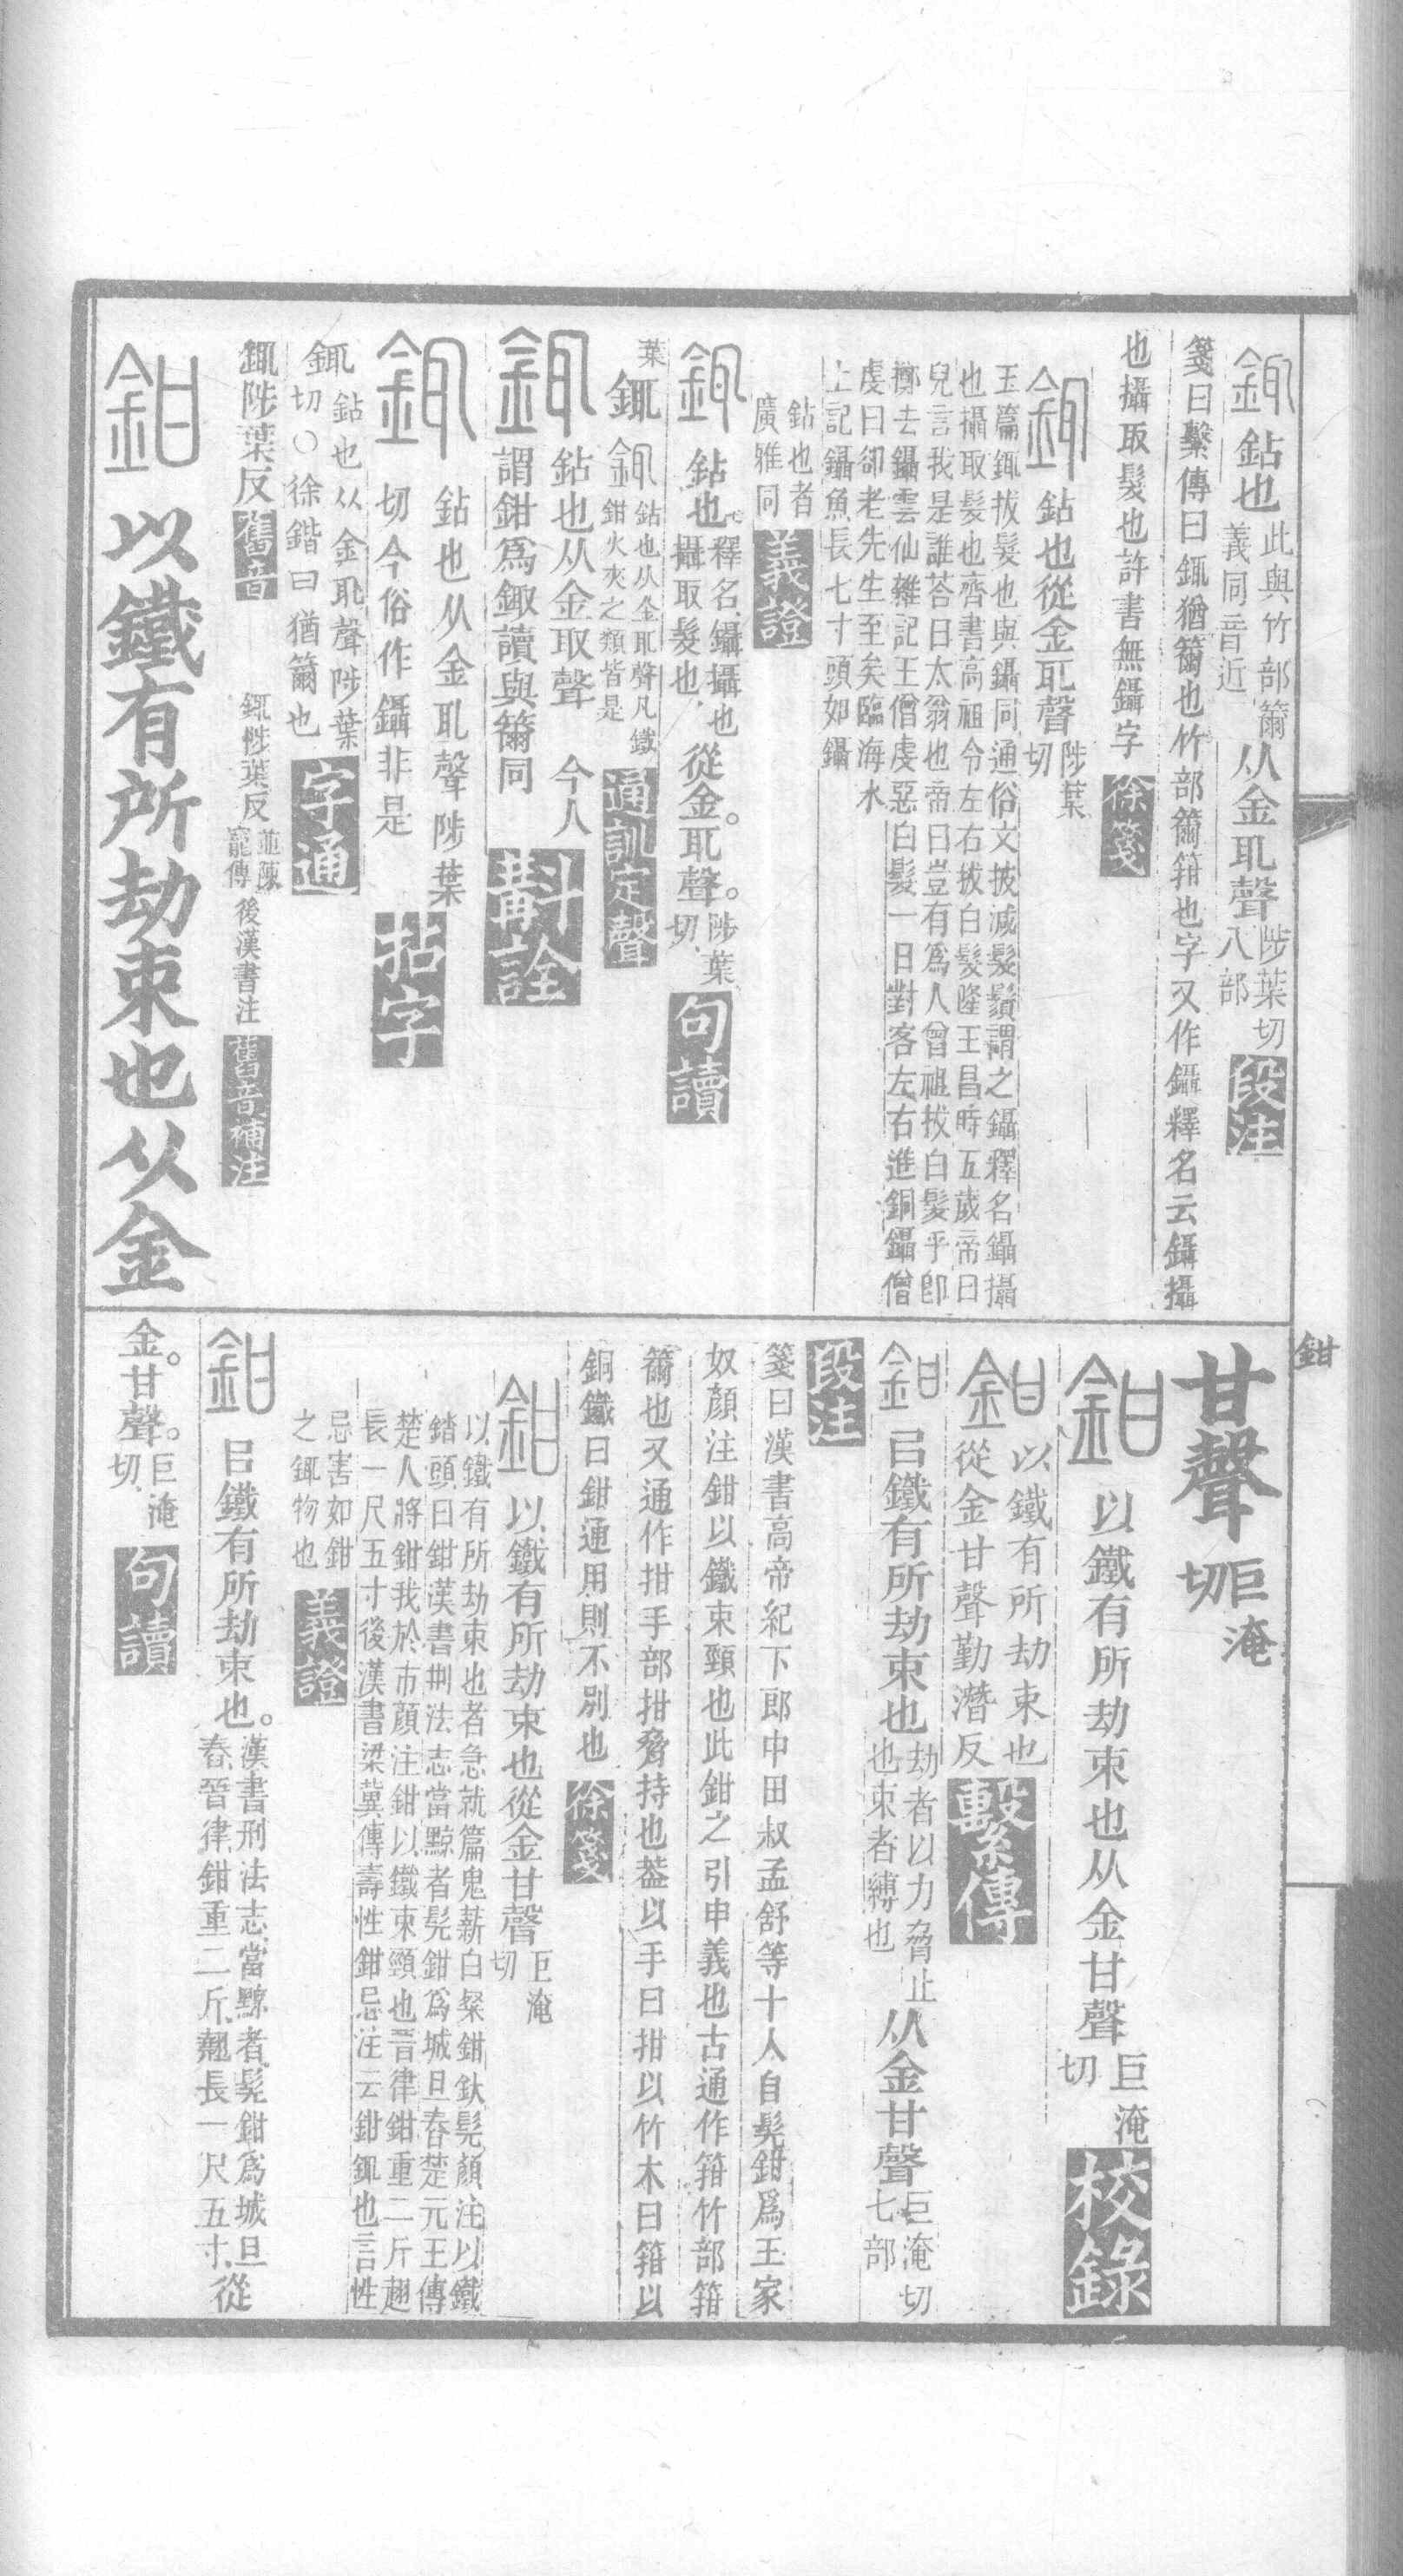 鉆也此與竹部籋義同音近从金耴聲陟葉切八部段注
箋曰繫傳曰鈪猶籋也竹部籋箝也字又作鑷釋名云鑷攝
也攝取髮也許書無鑷字徐箋
鉆也從金耴聲陟葉切
玉篇鉆拔髮也與鑷同通俗文拔減髮鬚謂之鑷釋名鑷攝
也攝取髮也齊書高祖令左右拔白髮隆王昌時五歲帝曰
兒言我是誰荅曰太翁也帝曰豈有爲人曾祖拔白髮乎卽
擲去鑷雲仙雜記王僧虔惡白髮一日對客左右進銅鑷僧
虔曰卻老先生至矣臨海水
土記鑷魚長七寸頭如鑷
鉆也者
廣雅同義證
鉆也釋名鑷攝也攝取髮也從金耴聲陟葉切句讀
葉
鉆也从金耴聲凡鐵鉗火夾之類皆是通訓定聲
鉆也从金取聲 今人
謂鉗爲鋷讀與籋同斠詮
鉆也从金耴聲陟葉
切今俗作鑷非是拈字
鉆也从金耴聲陟葉
切○徐鍇曰猶籋也字通
陟葉反舊音
陟葉反竝陳寵傳後漢書注舊音補注
鉗 以鐵有所劫束也从金
鉗
甘聲巨淹切
鉗 以鐵有所劫束也从金甘聲巨淹切校錄
鉗 以鐵有所劫束也
從金甘聲勤潛反繫傳
鉗 㠯鐵有所劫束也劫者以力脅止也束者縛也从金甘聲巨淹切七部
段注
箋曰漢書高帝紀下郎中田叔孟舒等十人自髡鉗爲王家
奴顏注鉗以鐵束頸也此鉗之引申義也古通作箝竹部箝
籋也又通作拑手部拑脅持也葢以手曰拑以竹木曰箝以
銅鐵曰鉗通用則不別也徐箋
鉗 以鐵有所劫束也從金甘聲巨淹切
以鐵有所劫束也者急就篇鬼薪白粲鉗釱髡顏注以鐵
錔頭曰鉗漢書刑法志當黥者髡鉗爲城旦舂楚元王傳
楚人將鉗我於市顏注鉗以鐵束頸也晉律鉗重二斤翹
長一尺五寸後漢書梁冀傳壽性鉗忌注云鉗鉆也言性
忌害如鉗
之鉆物也義證
鉗 㠯鐵有所劫束也。漢書刑法志當黥者髡鉗爲城旦舂、晉律、鉗重二斤、翹長一尺五寸、從
金。甘聲。巨淹切、句讀